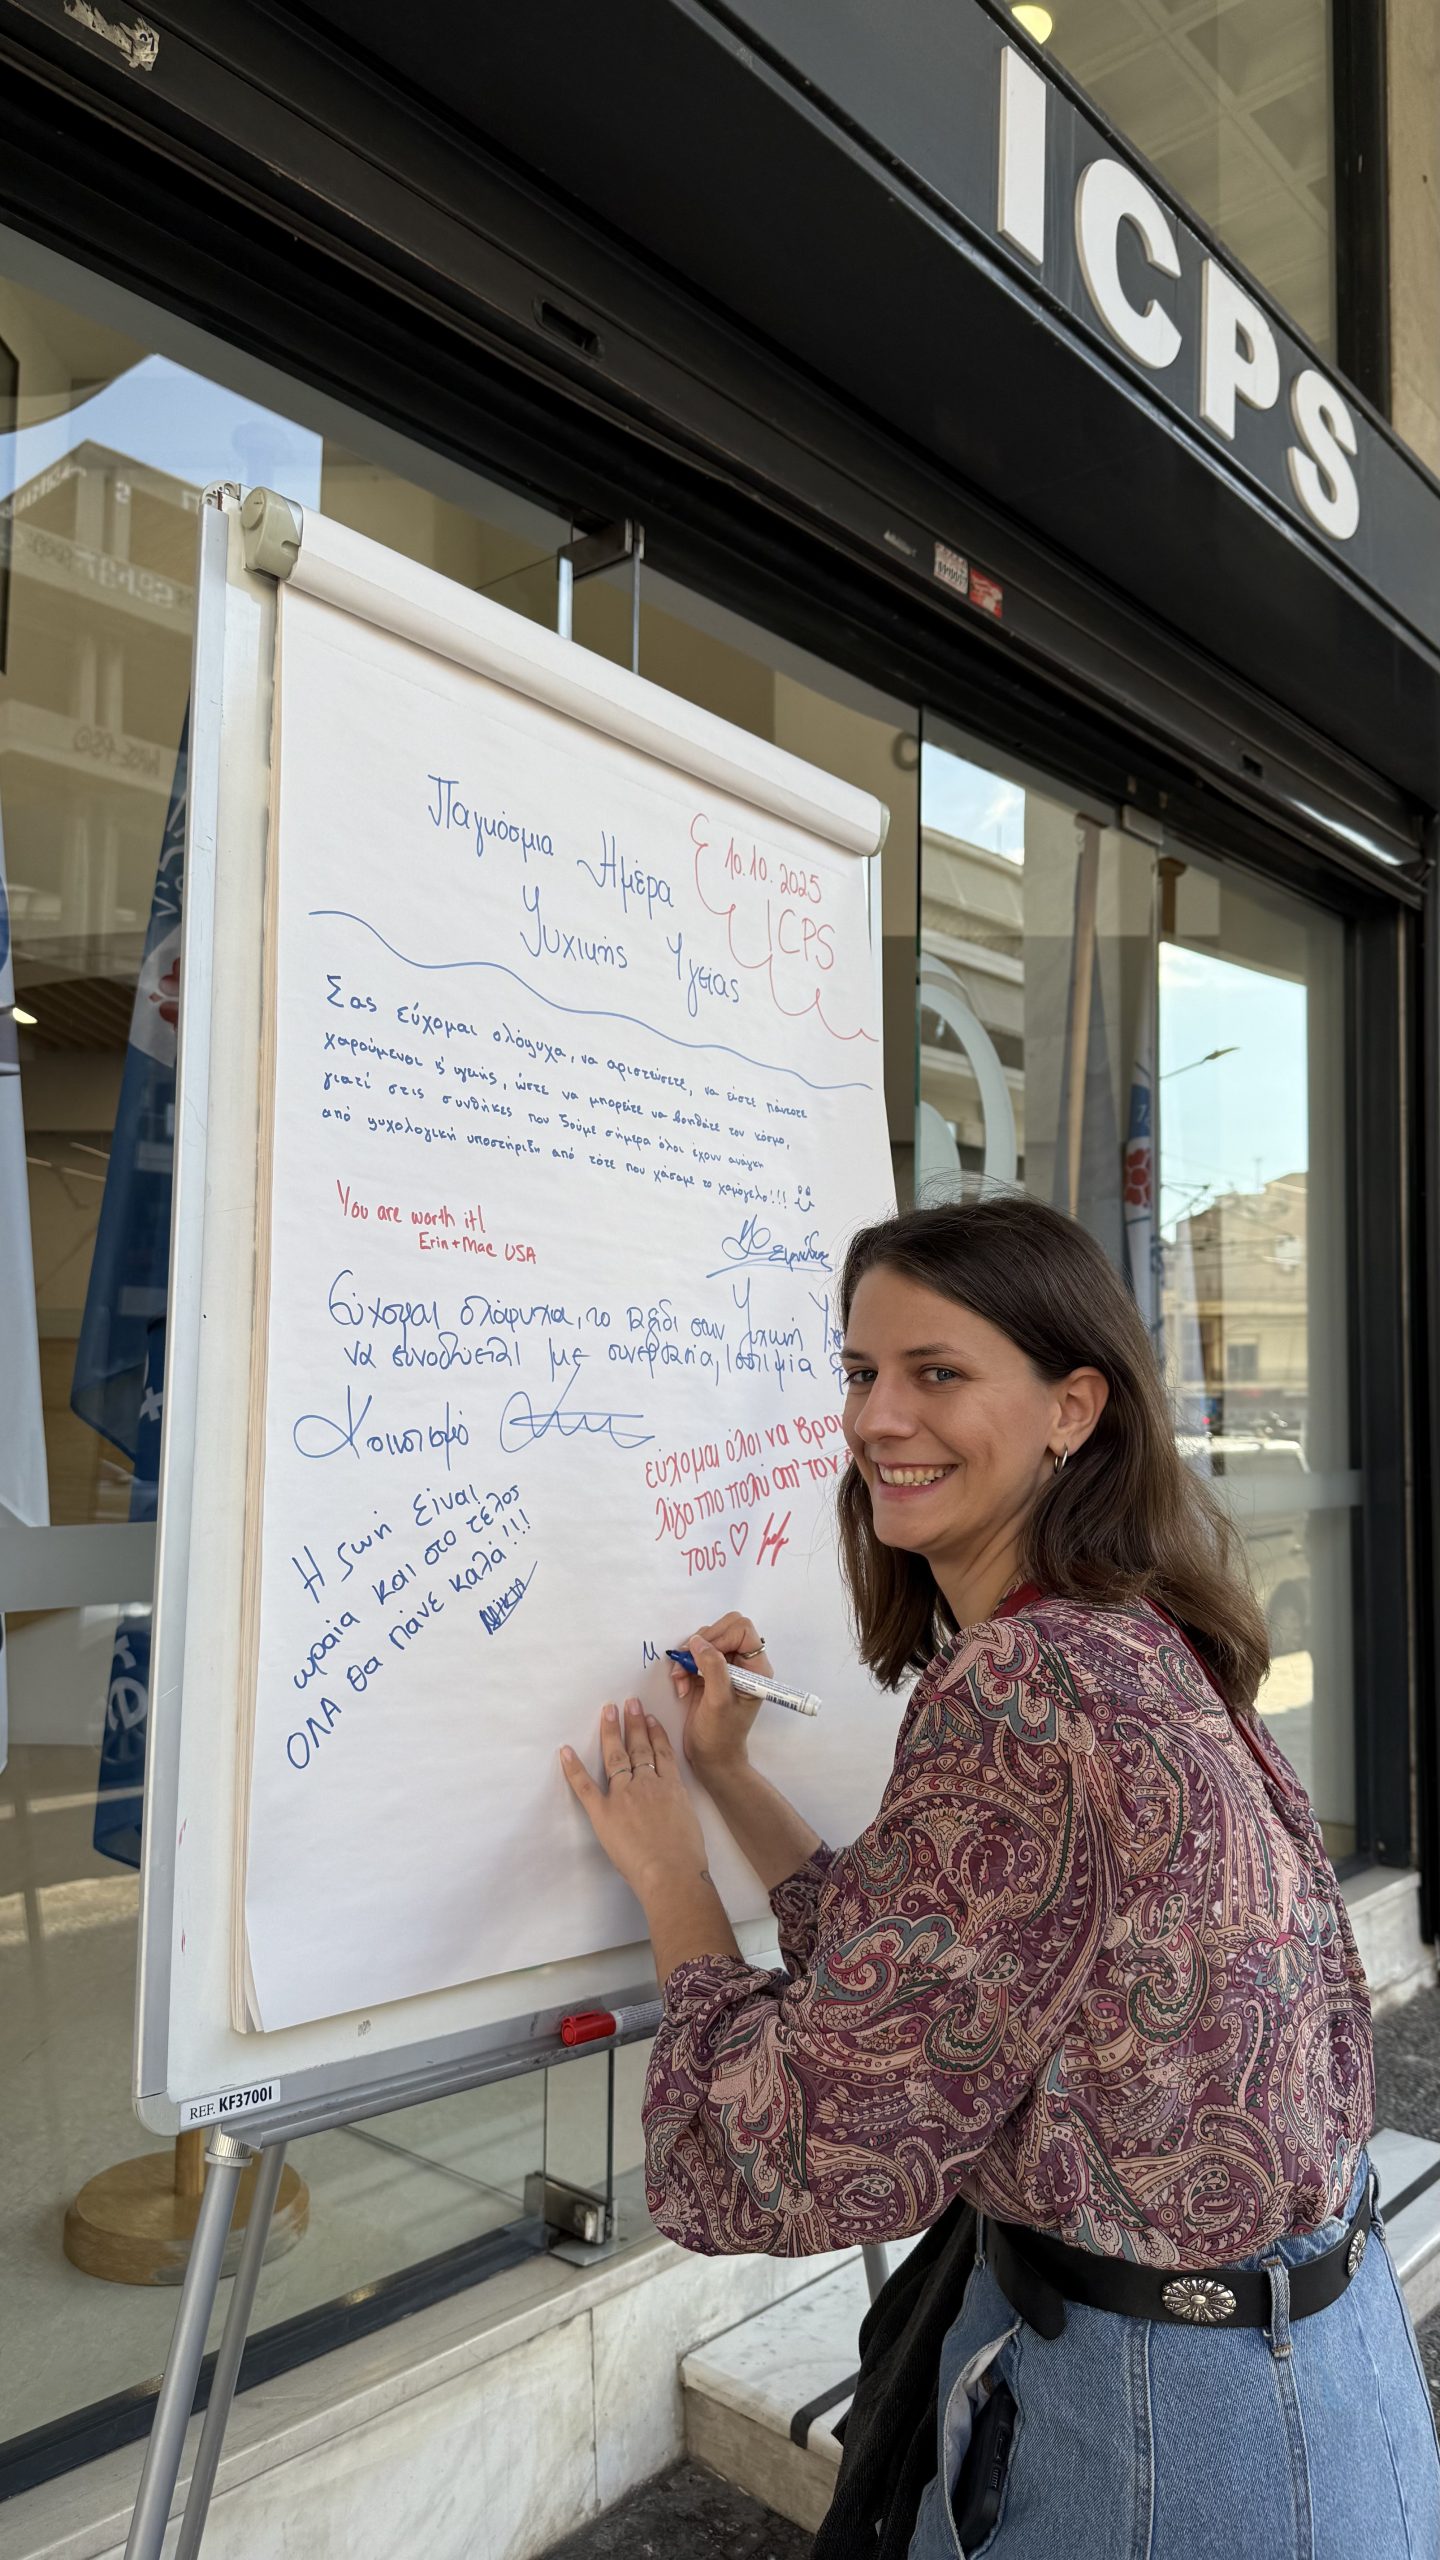 ICPS
Παγκόσμια Ημέρα
Ψυχικής Υγείας
10.10.2025
ICPS
Σας εύχομαι ολόψυχα, να αριστεύσετε, να είστε πάντοτε
χαρούμενοι & υγιής, ώστε να μπορείτε να βοηθάτε τον κόσμο,
γιατί στις συνθήκες που ζούμε σήμερα όλοι έχουν ανάγκη
από ψυχολογική υποστήριξη από τότε που χάσαμε το χαμόγελο!!!
You are worth it!
Erin + Mac USA
Εύχομαι ολόψυχα, το ταξίδι στην Ψυχική
να συνοδεύεται με συνεργασία,
Η ζωή είναι
ωραία και στο τέλος
ΟΛΑ θα πάνε καλά!!!
εύχομαι όλοι να βρουν
λίγο πιο πολύ απ' τον
τους ♡
Μ
REF. KF3700I